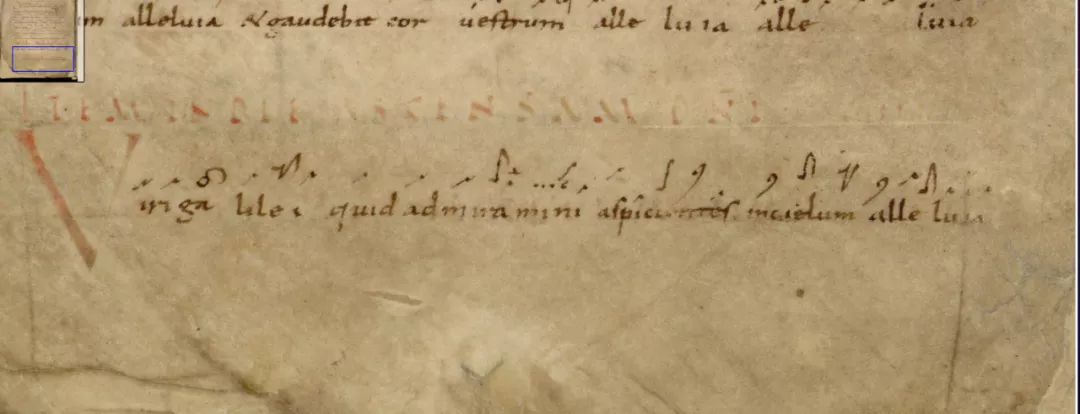 m alleluia & gaudebit cor vestrum alle lu ia alle luia
ITEM DIE
Viriga lilei quid admiramini aspicientes incielum alle luia